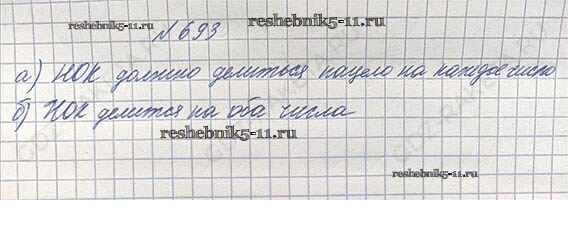 №693
reshebnik5-11.ru
а) НОК должно делиться нацело на каждое число
б) НОК делится на оба числа
reshebnik5-11.ru
reshebnik5-11.ru